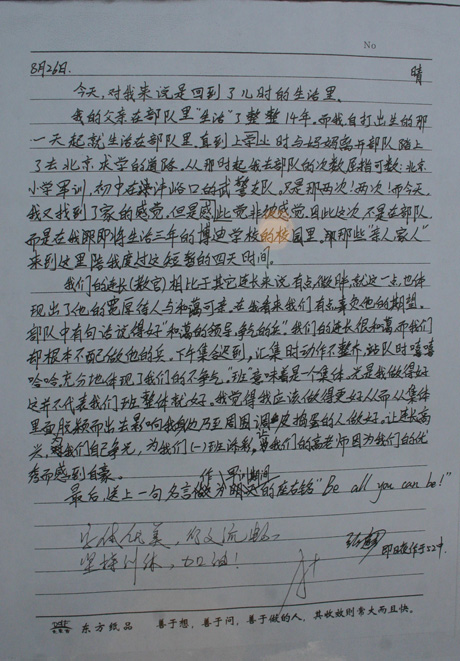 No
8月26日. 晴
今天,对我来说是回到了儿时的生活里.
我的父亲在部队里"生活"了整整14年.而我自打出生的那
一天起就生活在部队里.直到上学业时与妈妈离开部队踏上
了去北京求学的道路.从那时起我去部队的次数屈指可数:北京
小学军训,初中在 峪口的武警支队.只是那两次!两次!而今天,
我又找到了家的感觉.但是感此觉非彼感觉.因此这次不是在部队,
而是在我即将生活三年的博迪学校的校园里.那那些"亲人、家人"
来到这里陪我度过这短暂的四天时间.
我们的连长(教官)相比于其它连长来说有点微胖.就这一点,也体
现出了他的宽厚待人与和蔼可亲.在我看来我们有点辜负他的期望.
部队中有句话说得好"和蔼的领导,争气的兵"我们的连长很和蔼,而我们
却根本不配做他的兵.下午集合迟到,汇集时动作不整齐.站队时嘻嘻
哈哈.充分地体现了我们的不争气."班"意味着是一个集体.光是我做得好
这并不代表我们班整体就好.我觉得我应该做得更好从而从集体
里面脱颖而出去影响我身边乃至周围调皮捣蛋的人做好.让连长高
兴,为我们自己争光,为我们(一)班添彩,当我们的高老师因为我们的优
秀而感到自豪.
最后,送上一句名言做为 军训期间的座右铭"Be all you can be!"
即日夜作于224
坚持训练,加油!
东方纸品 善于想,善于问,善于做的人,其收效则常大而且快。